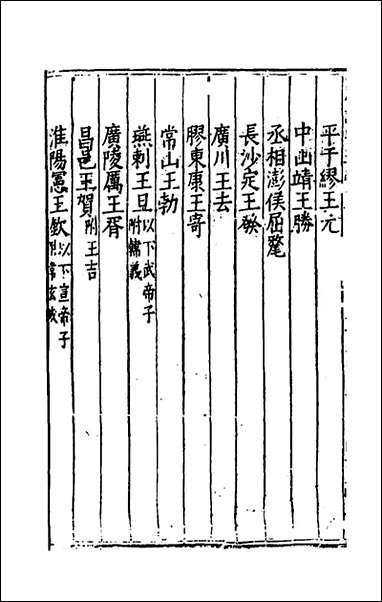 平于繆王元
中山靖王勝
丞相澎侯屈氂
長沙定王發
廣川王去
膠東康王寄
常山王勃
燕刺王旦以下武帝子附韓義
廣陵厲王胥
昌邑王賀附王吉
淮陽憲王欽以下宣帝子附韋玄成